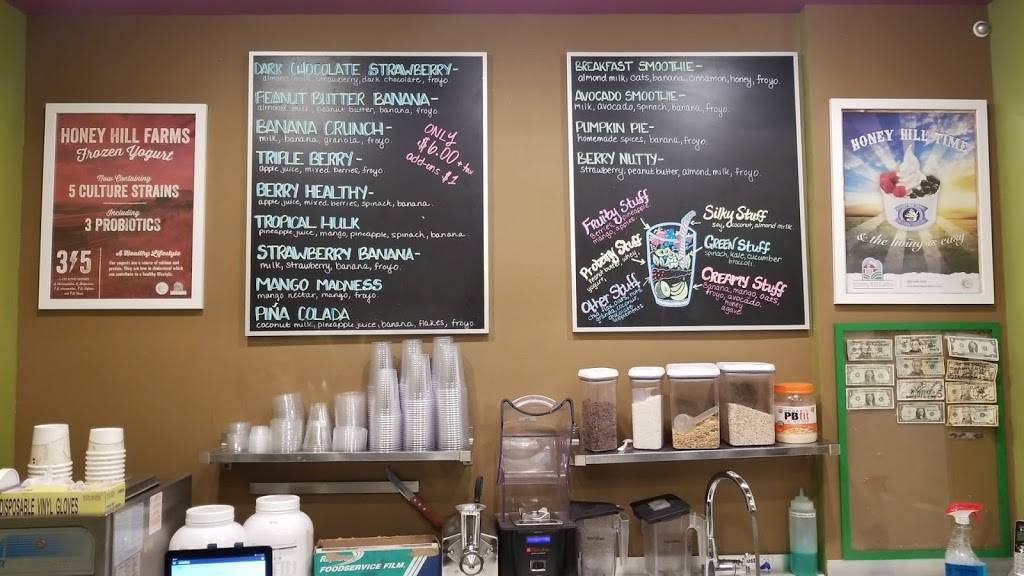 HONEY HILL FARMS
Frozen Yogurt
Now Containing
5 CULTURE STRAINS
Including
3 PROBIOTICS
A Healthy Lifestyle
DARK CHOCOLATE STRAWBERRY-
almond milk, strawberry, dark chocolate, froyo.
PEANUT BUTTER BANANA-
almond milk, peanut butter, banana, froyo.
BANANA CRUNCH-
milk, banana, granola, froyo.
TRIPLE BERRY-
apple juice, mixed berries, froyo
BERRY HEALTHY-
apple juice, mixed berries, spinach, banana.
TROPICAL HULK
pineapple juice, mango, pineapple, spinach, banana.
STRAWBERRY BANANA-
milk, strawberry, banana, froyo.
MANGO MADNESS
mango nectar, mango, froyo.
PIÑA COLADA
coconut milk, pineapple juice, banana, flakes, froyo
ONLY
$6.00 + tax
add-ons $1
BREAKFAST SMOOTHIE-
almond milk, oats, banana, cinnamon, honey, froyo.
AVOCADO SMOOTHIE-
milk, avocado, spinach, banana, froyo.
PUMPKIN PIE-
homemade spices, banana, froyo.
BERRY NUTTY-
strawberry, peanut butter, almond milk, froyo.
Fruity Stuff
Silky Stuff
soy, coconut, almond milk
Protein Stuff
Green Stuff
spinach, kale, cucumber
broccoli
Other Stuff
Creamy Stuff
banana, mango, oats,
froyo, avocado,
honey,
agave
HONEY HILL TIME
& the living is easy
PBfit
DISPOSABLE VINYL GLOVES
FOODSERVICE FILM